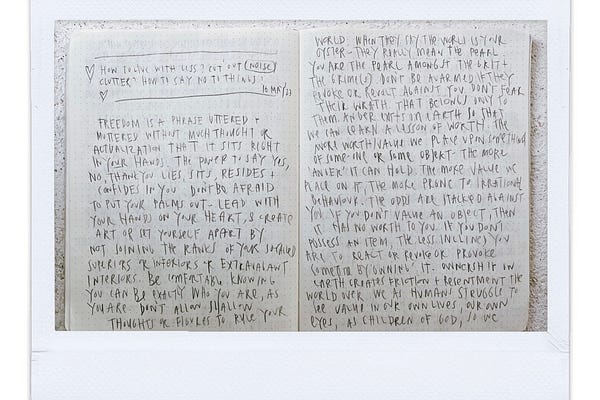 HOW TO LIVE WITH LESS? CUT OUT (NOISE)
CLUTTER? HOW TO SAY NO TO THINGS?
10 MAY/23
FREEDOM IS A PHRASE UTTERED +
MUTTERED WITHOUT MUCH THOUGHT OR
ACTUALIZATION THAT IT SITS RIGHT
IN YOUR HANDS. THE POWER TO SAY YES,
NO, THANK YOU LIES, SITS, RESIDES +
CONFIDES IN YOU. DON'T BE AFRAID
TO PUT YOUR PALMS OUT - LEAD WITH
YOUR HANDS ON YOUR HEART, & CREATE
ART OR SET YOURSELF APART BY
NOT JOINING THE RANKS OF YOUR SO CALLED
SUPERIORS OR INFERIORS OR EXTRAVAGANT
INTERIORS. BE COMFORTABLE KNOWING
YOU CAN BE EXACTLY WHO YOU ARE, AS
YOU ARE. DON'T ALLOW SHALLOW
THOUGHTS OR FIGURES TO RULE YOUR
WORLD. WHEN THEY SAY THE WORLD IS YOUR
OYSTER - THEY REALLY MEAN THE PEARL.
YOU ARE THE PEARL AMONGST THE GRIT +
THE GRIME(S) DON'T BE ALARMED IF THEY
REVOKE OR REVOLT AGAINST YOU. DON'T FEAR
THEIR WRATH THAT BELONGS ONLY TO
THEM. ANGER EXISTS IN EARTH SO THAT
WE CAN LEARN A LESSON OF WORTH. THE
MORE WORTH/VALUE WE PLACE UPON SOMETHING
OF SOME-ONE OR SOME OBJECT - THE MORE
ANGER IT CAN HOLD. THE MORE VALUE WE
PLACE ON IT, THE MORE PRONE TO IRRATIONAL
BEHAVIOUR. THE ODDS ARE STACKED AGAINST
YOU. IF YOU DON'T VALUE AN OBJECT, THEN
IT HAS NO WORTH TO YOU. IF YOU DON'T
POSSESS AN ITEM, THE LESS INCLINED YOU
ARE TO REACT OR REVOKE OR PROVOKE
SOMETHIN BY 'OWNING' IT. OWNERSHIP IN
EARTH CREATES FRICTION & RESENTMENT THE
WORLD OVER. WE AS HUMANS STRUGGLE TO
SEE VALUE IN OUR OWN LIVES, OUR OWN
EYES, AS CHILDREN OF GOD, SO WE